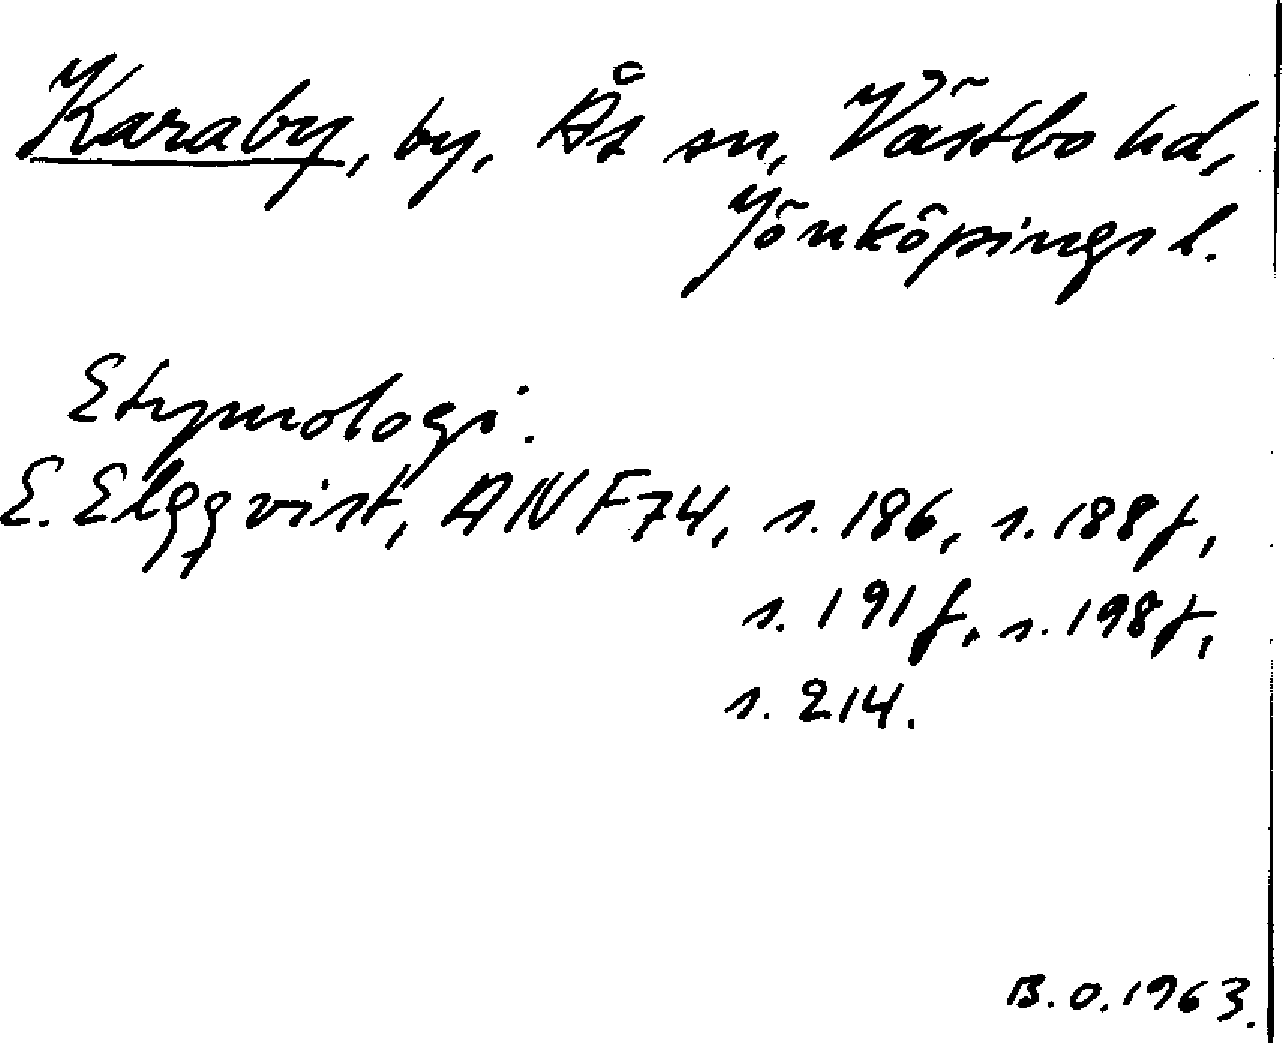 Karaby, by, Ås sn, Västbo hd,
Jönköpings l.
Etymologi.
E. Elgqvist, ANF 74, s. 186, s. 188 f,
s. 191 f, s. 198 f,
s. 214.
B.O. 1963.